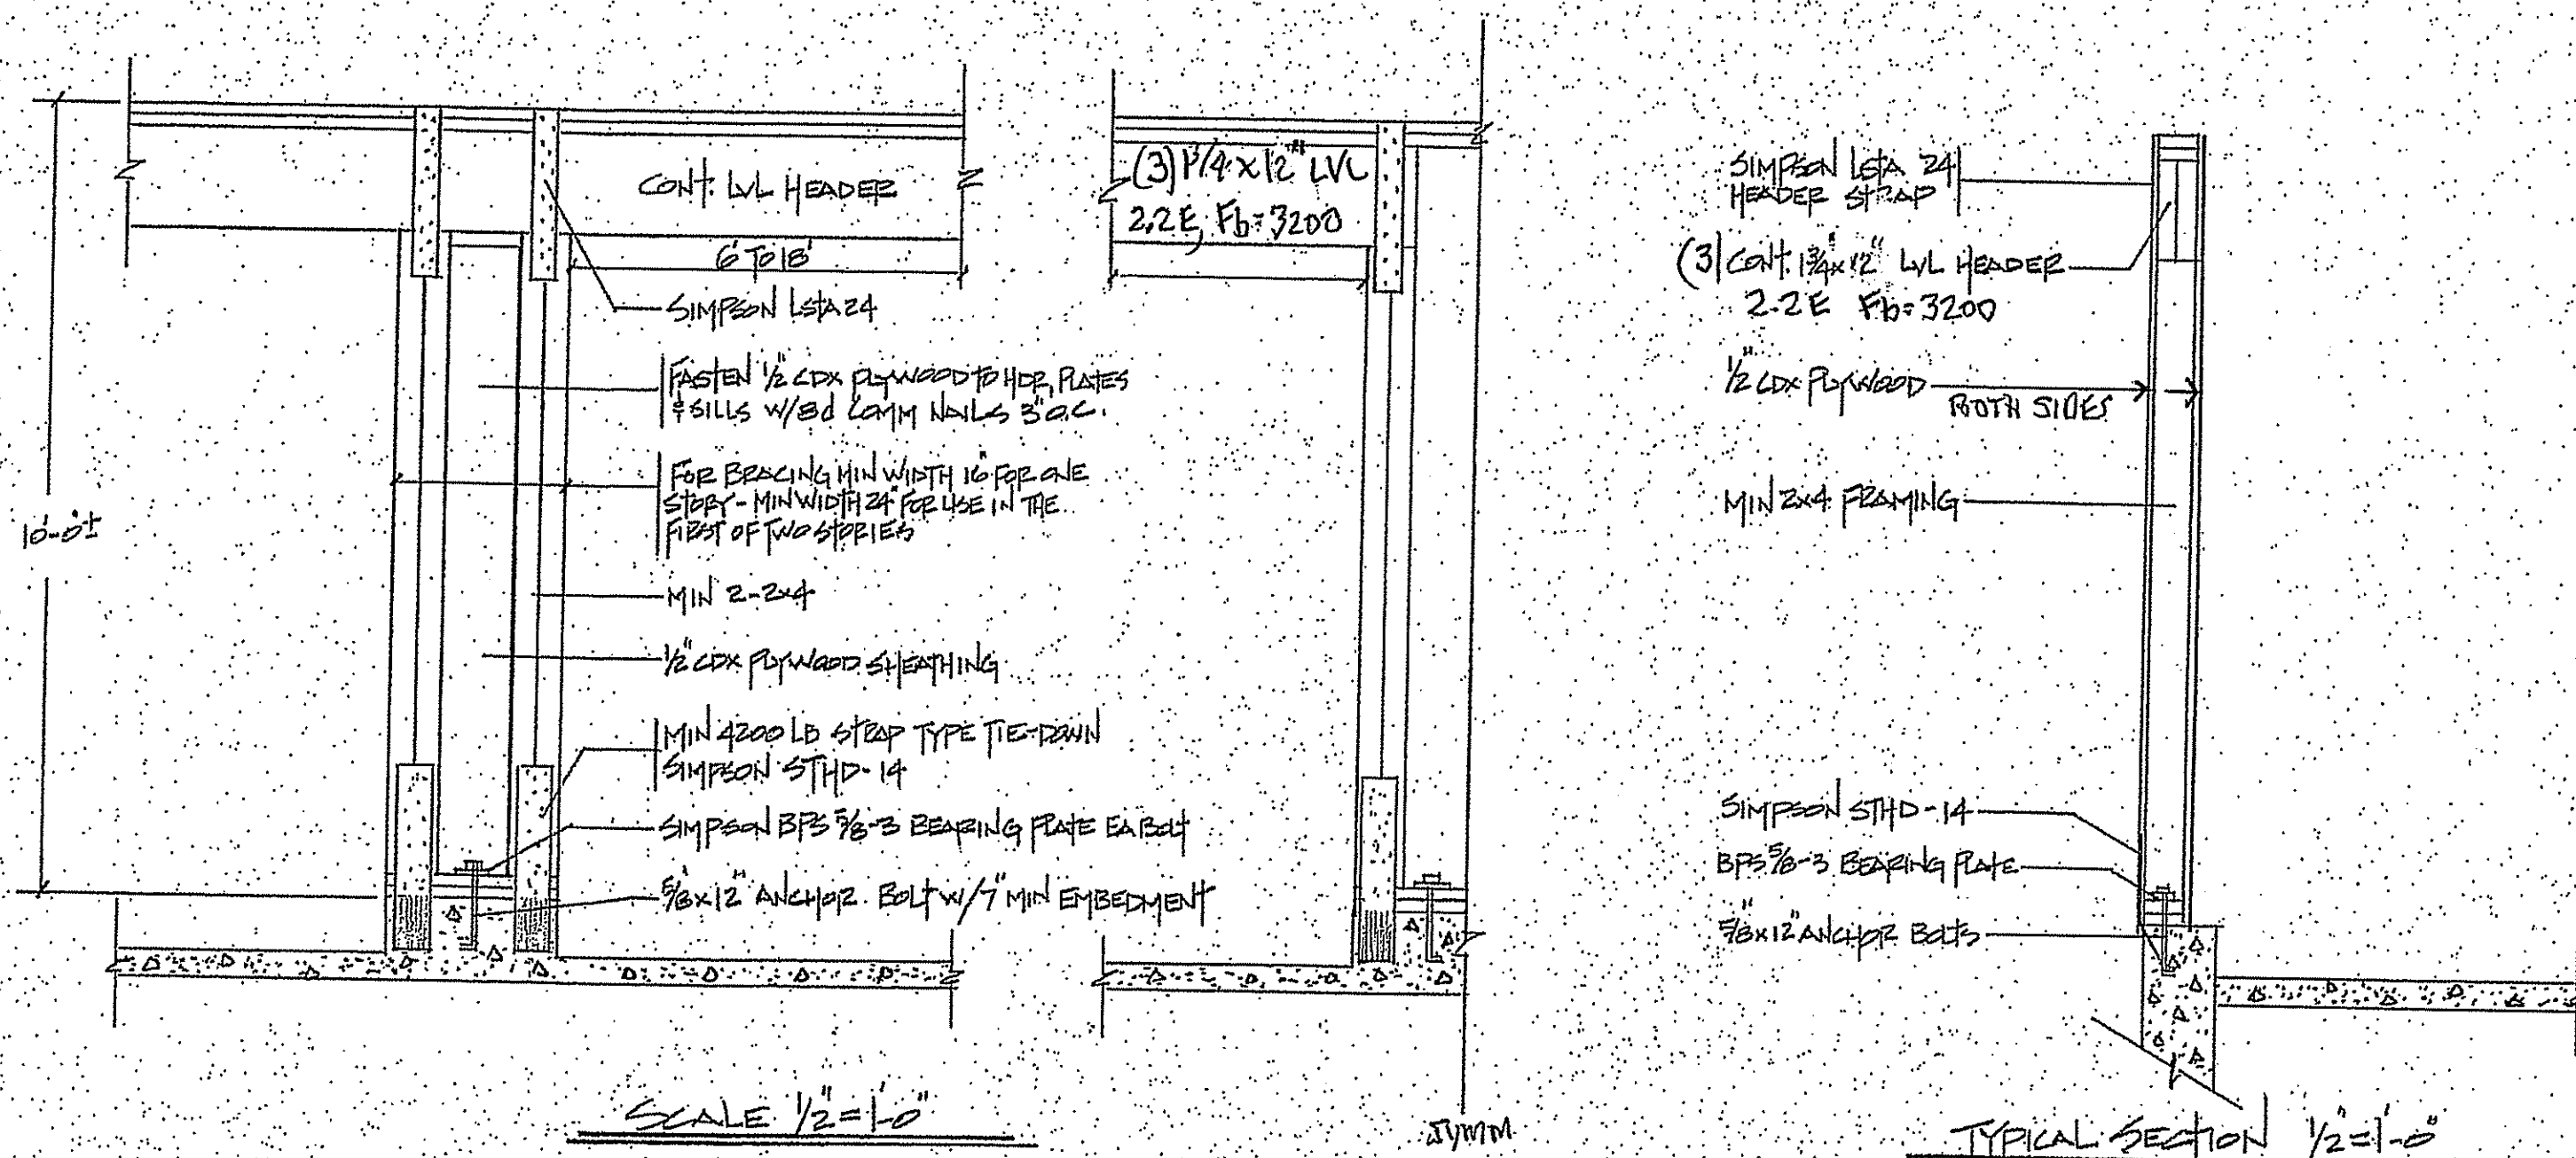 CONT. LVL HEADER
6' TO 18'
SIMPSON LSTA 24
FASTEN 1/2" CDX PLYWOOD TO HDR, PLATES
& SILLS W/8d COMM NAILS 3" O.C.
FOR BRACING MIN WIDTH 16" FOR ONE
STORY - MIN WIDTH 24" FOR USE IN THE
FIRST OF TWO STORIES
MIN 2-2x4
1/2" CDX PLYWOOD SHEATHING
MIN 4200 LB STRAP TYPE TIE-DOWN
SIMPSON STHD-14
SIMPSON BPS 5/8-3 BEARING PLATE EA BOLT
5/8"x12" ANCHOR BOLT W/7" MIN EMBEDMENT
10'-0"±
SCALE 1/2"=1'-0"
(3) 1 3/4 x 12" LVL
2.2E, Fb=3200
SYMM
SIMPSON LSTA 24
HEADER STRAP
(3) CONT. 1 3/4x12" LVL HEADER
2.2E Fb=3200
1/2" CDX PLYWOOD
BOTH SIDES
MIN 2x4 FRAMING
SIMPSON STHD-14
BPS 5/8-3 BEARING PLATE
5/8"x12" ANCHOR BOLTS
TYPICAL SECTION 1/2"=1'-0"